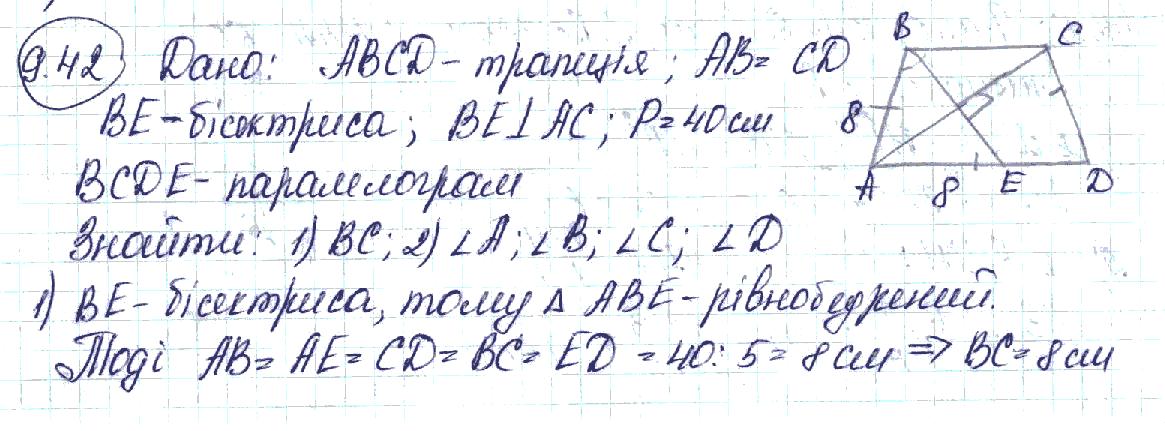 9.42 Дано: ABCD - трапеція; AB = CD
BE - бісектриса; BE ⊥ AC; P = 40 см
BCDE - паралелограм
Знайти: 1) BC; 2) ∠A; ∠B; ∠C; ∠D
1) BE - бісектриса, тому Δ ABE - рівнобедрений.
Тоді AB = AE = CD = BC = ED = 40 : 5 = 8 см => BC = 8 см
B C
8
A 8 E D